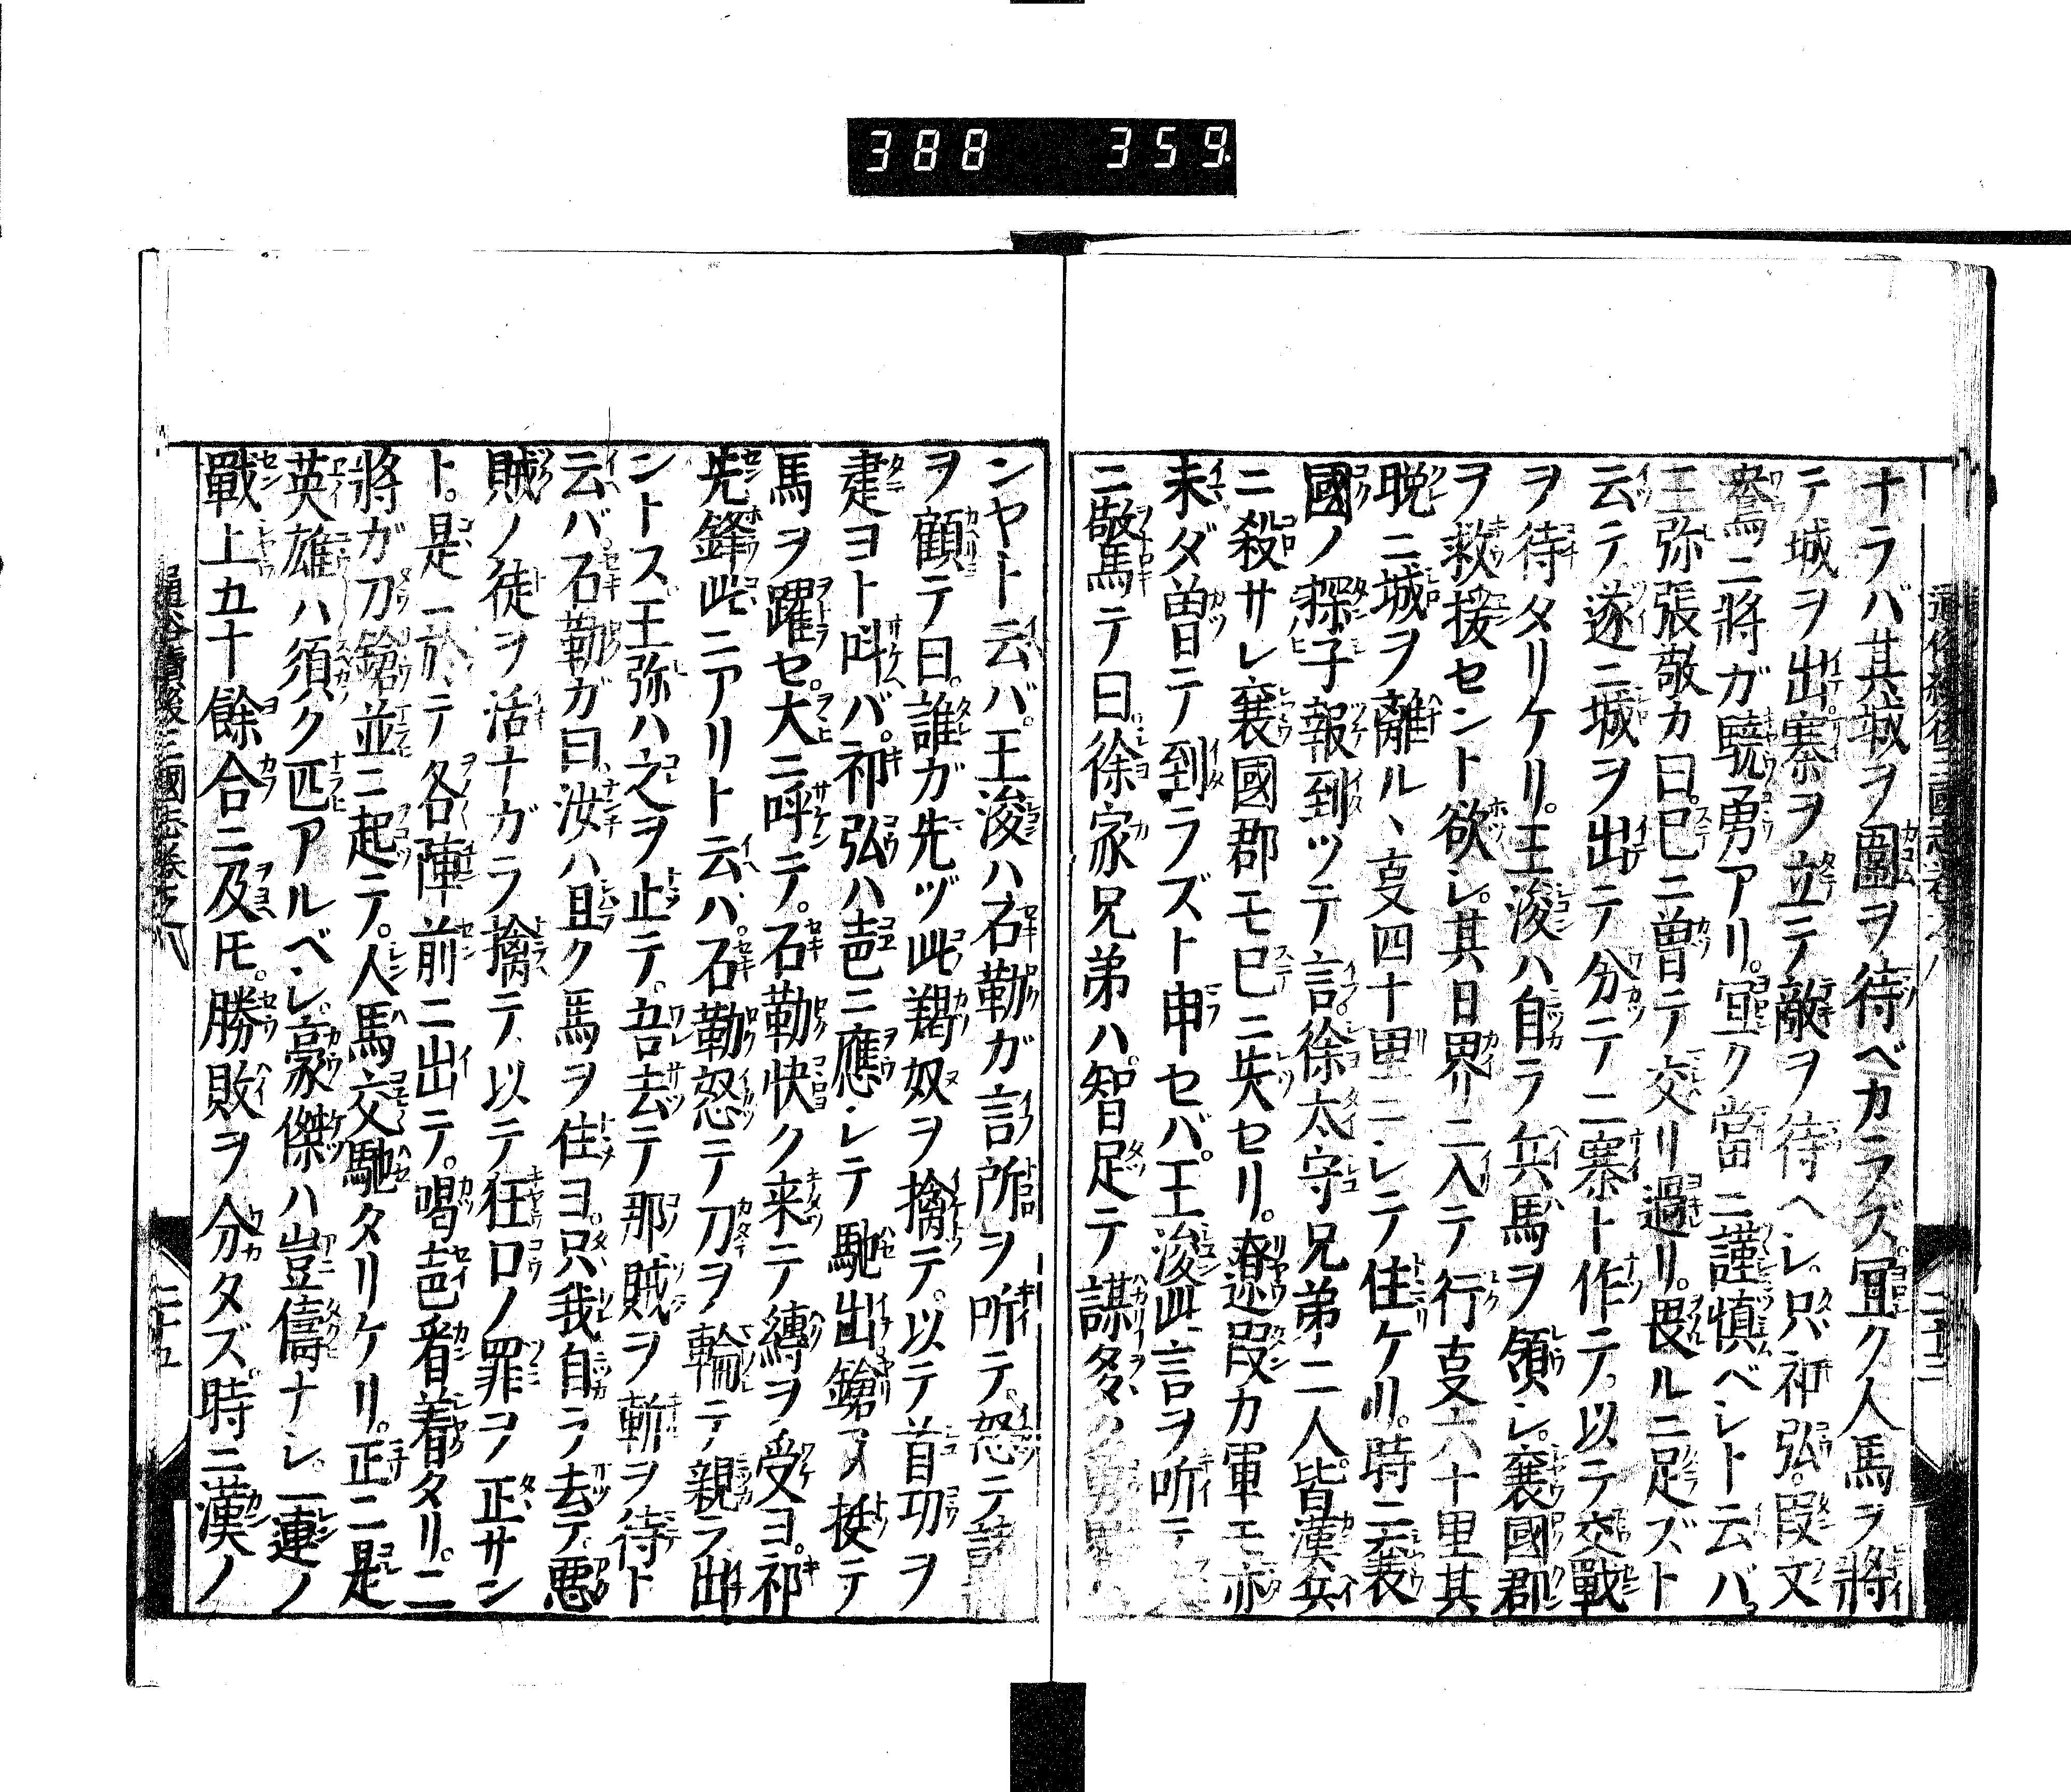 388 359
ナラバ其城ヲ圍ヲ待ベカラズ。宜ク人馬ヲ將
テ城ヲ出。寨ヲ立テ敵ヲ待ヘシ。只祁弘。叚文
鴦ニ將ガ驍勇アリ。宜ク當ニ謹慎ベシト云バ。
王弥張敬カ曰。已ニ曽テ交リ過リ。畏ルニ足ズト
云テ遂ニ城ヲ出テ分テ二寨ト作テ。以テ交戰
ヲ待タリケリ。王浚ハ自ラ兵馬ヲ領シ。襄國郡
ヲ救援セント欲シ。其日界ニ入テ行𠫤六十里其
晩ニ城ヲ離ル、𠫤四十里ニシテ住ケリ。時ニ襄
國ノ探子報到ツテ言徐太守兄弟二人皆漢兵
ニ殺サレ襄國郡モ已ニ失セリ。遼叚カ軍モ亦
未ダ曽テ到ラズト申セバ。王浚此言ヲ听テ
ニ驚テ曰徐家兄弟ハ智足テ謀多ク勇
ンヤト云バ。王浚ハ石勒ガ言所ヲ听テ。怒テ諸
ヲ顧テ曰。誰ガ先ヅ此羯奴ヲ擒テ。以テ首功ヲ
建ヨト叫バ。祁弘ハ声ニ應シテ馳出鎗ヲ挺テ
馬ヲ躍セ。大ニ呼テ。石勒快ク来テ縛ヲ受ヨ。祁
先鋒此ニアリト云ハ。石勒怒テ刀ヲ輪テ親ラ出
ントス王弥ハ之ヲ止テ。吾去テ那賊ヲ斬ヲ待ト
云バ。石勒ガ曰汝ハ且ク馬ヲ住ヨ。只我自ラ去テ。悪
賊ノ徒ヲ活ナガラ擒テ以テ狂口ノ罪ヲ正サン
ト。是ニ於テ各陣前ニ出テ。喝声看着タリ。二
將ガ刀鎗並ニ起テ。人馬交馳タリケリ。正ニ是
英雄ハ須ク匹アルベシ。豪傑ハ豈儔ナシ。一連ノ
戰上五十餘合ニ及𪜈。勝敗ヲ分タズ。時ニ漢ノ
通俗續後三國志卷之八
二十五